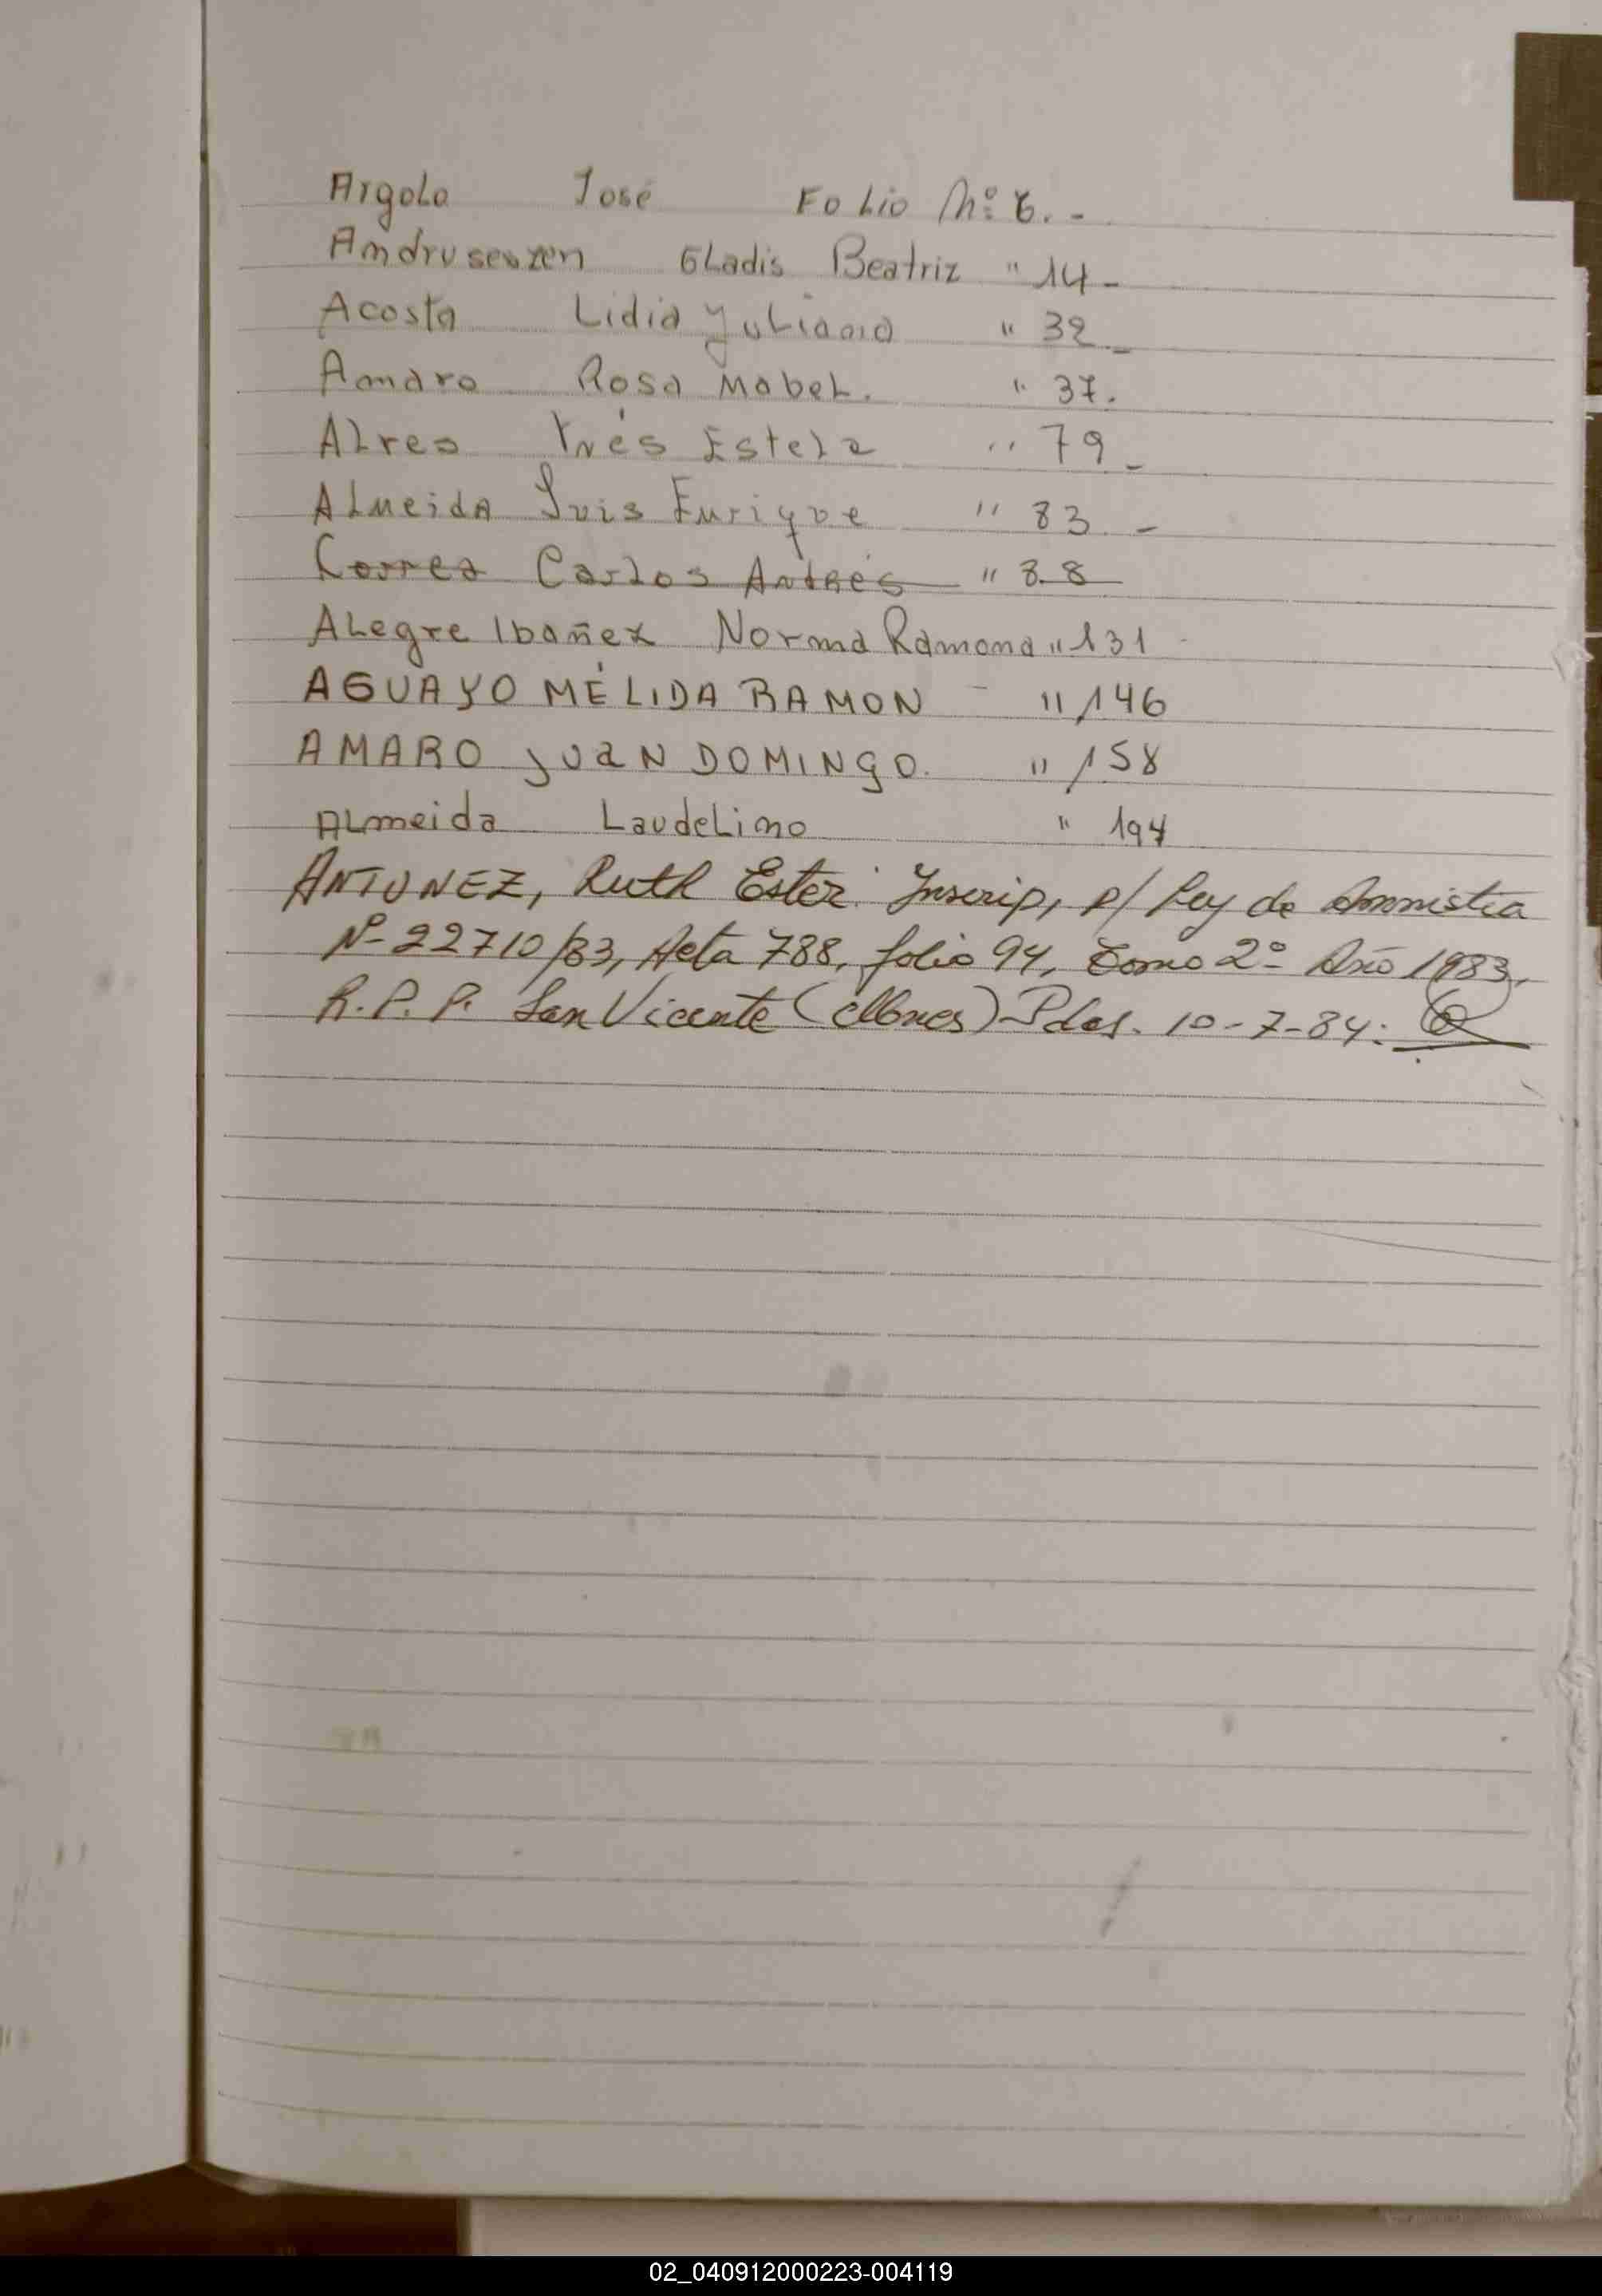 Argolo José Folio Nº: 6. -
Gladis Beatriz " 14 -
Acosta Lidia Yuliana " 32 -
Amaro Rosa Mabel. " 37.
Alres Ynés Estela " 79 -
Almeida Luis Enrique " 83. -
Correa Carlos Andrés " 88
Alegre Ibañez Norma Ramona " 131 -
AGUAYO MÉLIDA RAMON - " 146
AMARO JUAN DOMINGO. " 158
Almeida Laudelino " 194
ANTUNEZ, Ruth Ester: Inscrip, p/ Ley de Amnistia
Nº 22710/83, Acta 788, folio 94, Tomo 2º Año 1983,
R.P.P. San Vicente (Mnes) Pdas. 10-7-84:
02_040912000223-004119